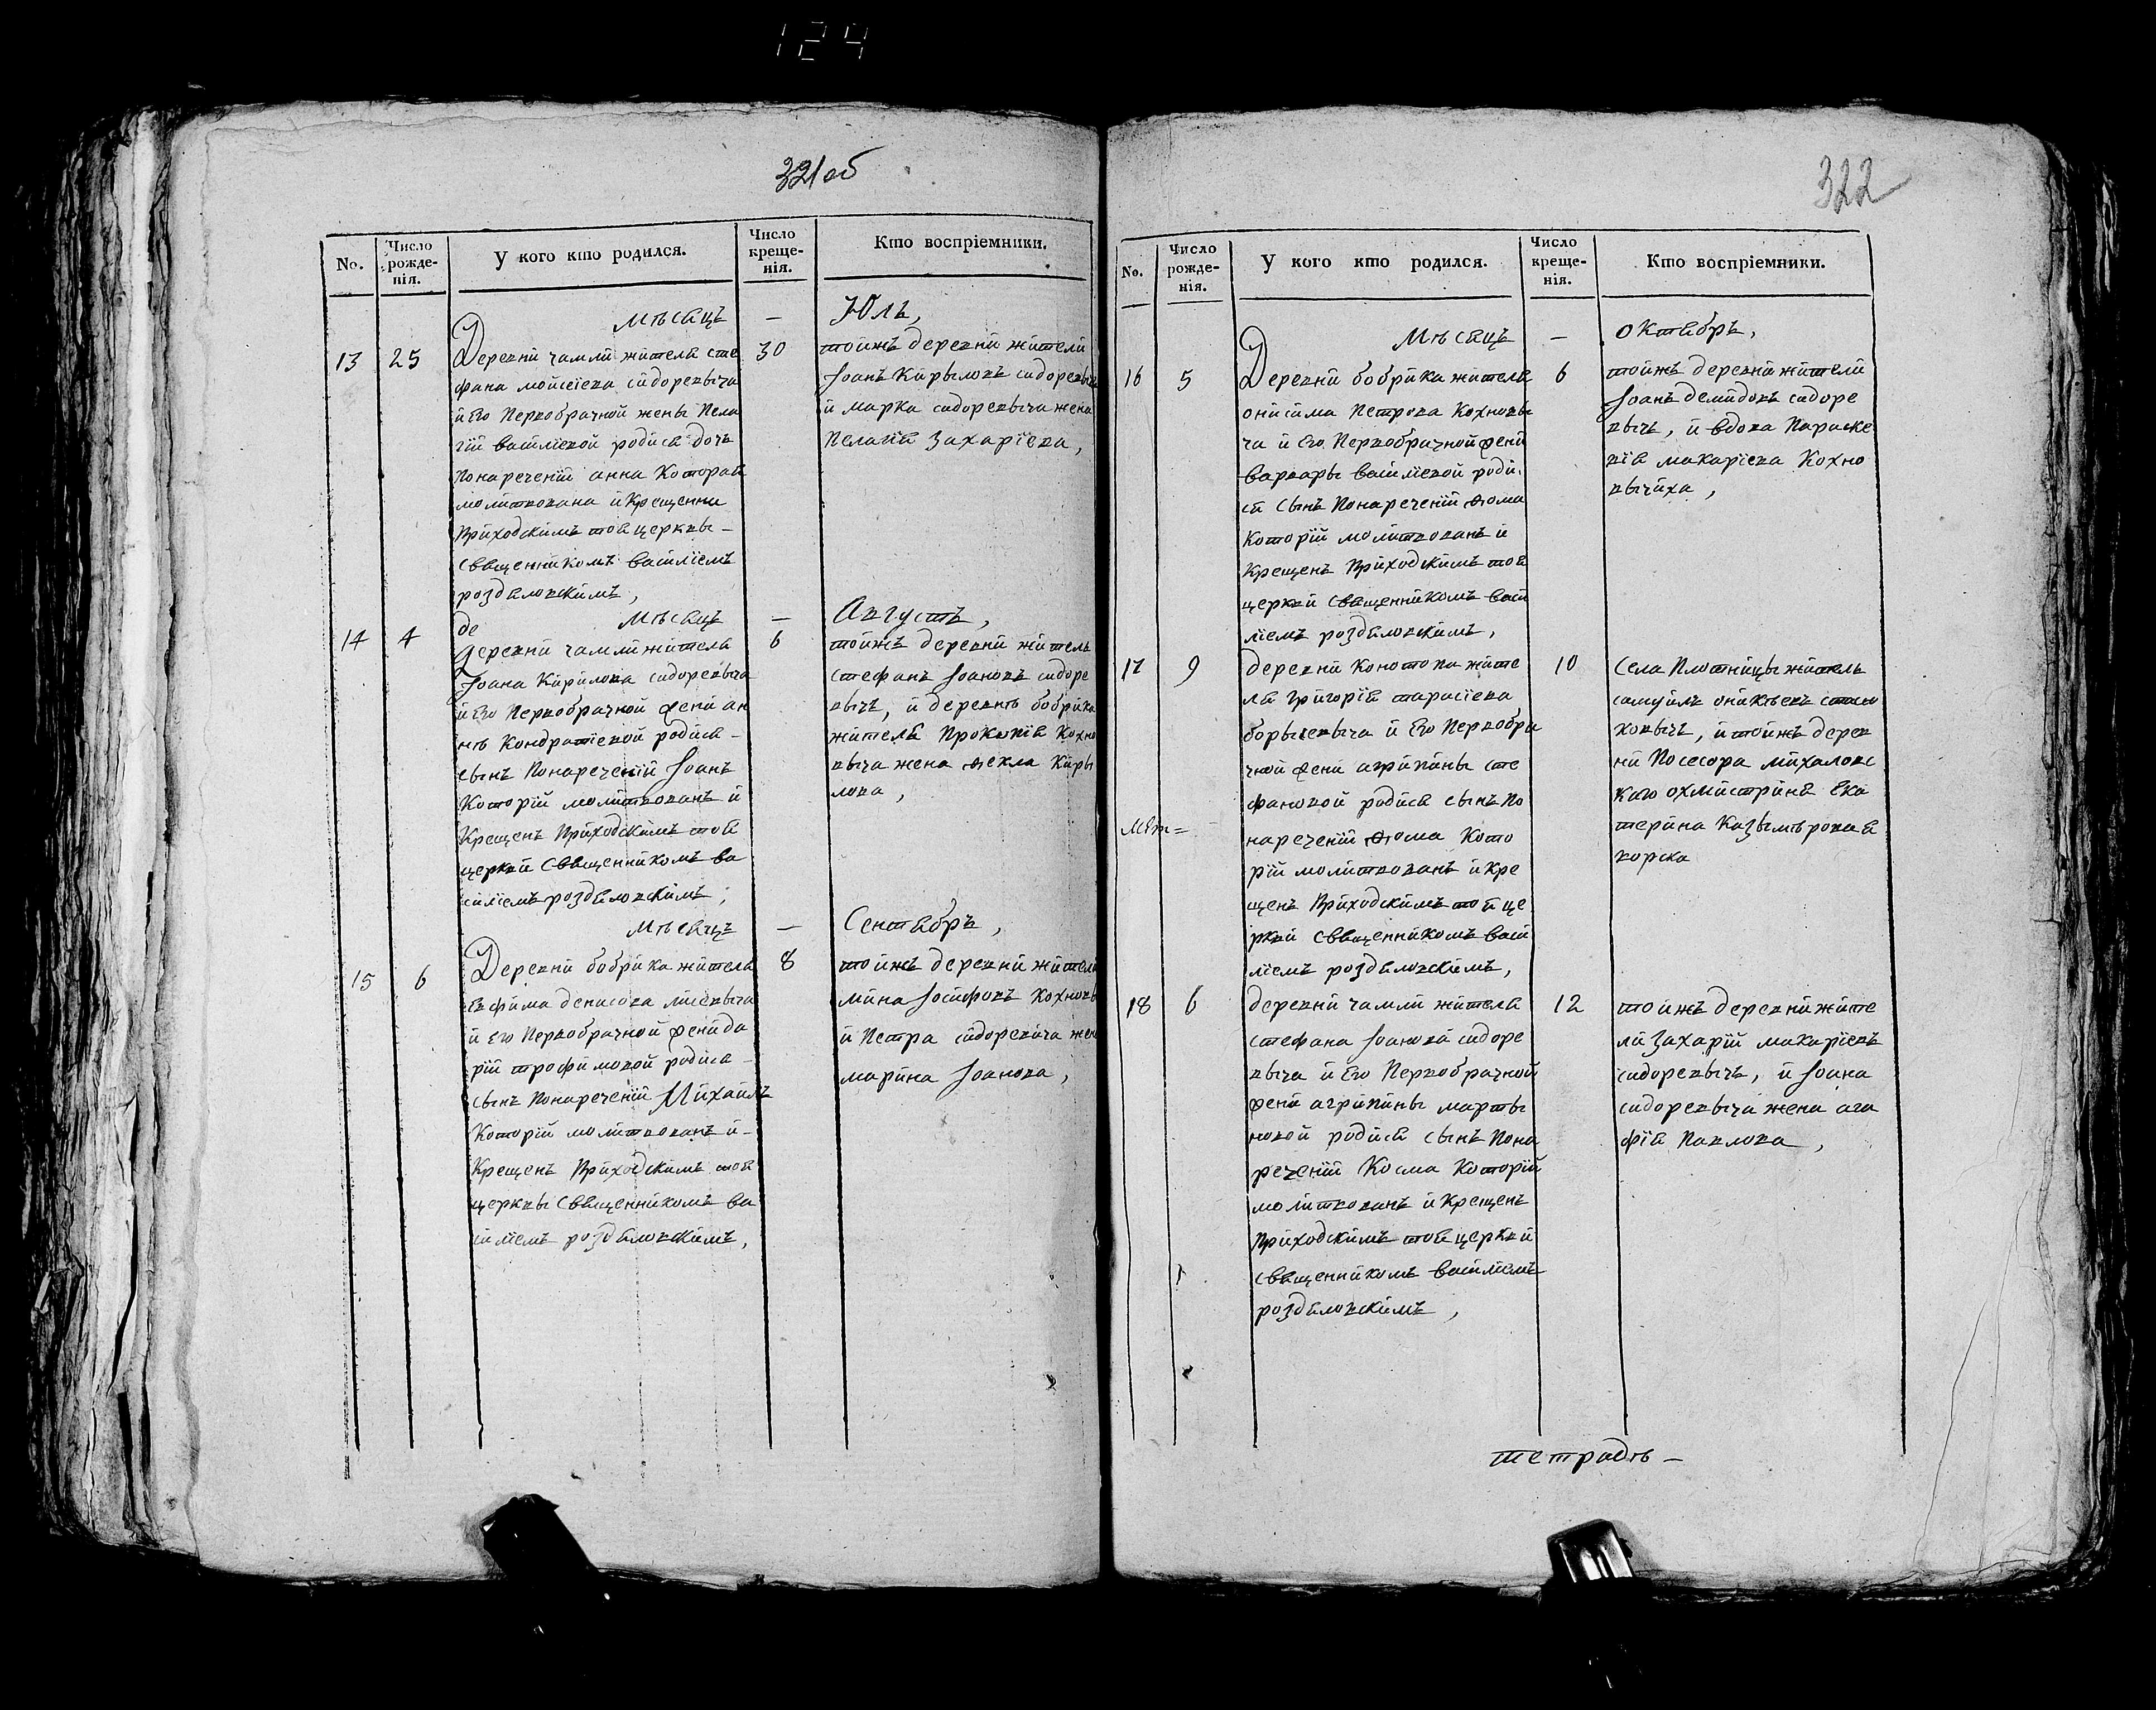 124
321 об
No.
Число рожде-нія.
У кого кто родился.
Число креще-нія.
Кто воспріемники.
Мѣсѧцъ — Юль,
13 25
Деревнй чамлй жителѧ сте
фана мойсіева сидоревыча
й Его Первобрачной жены Пела
гій васйлїевой родися дочь
Понареченїй анна Которая
молитвована й Крещенна
Приходскимъ тоя церквы –
священникомъ васйлїемъ
роздяловскимъ,
30
тойжъ деревнй жителй
Іоанъ Кйрыловъ сидоревычъ
й марка сидоревыча жена
Пелагія Захарїева,
де Мѣсѧцъ — Августъ,
14 4
деревнй чамлй жителя
Іоана Кйрйлова сидоревыча
й Его Первобрачной жени ан
нѣ Кондратїевой родися –
сынъ Понареченїй Іоанъ
Которїй молитвованъ й
Крещенъ Приходскимъ тоя
церквй священникомъ ва
силїемъ роздяловскимъ;
6
тойжъ деревнй житель
стефанъ Іоановъ сидоре
вычъ, й деревнѣ бобрйка
жителя Прокопія Кохно
выча жена ѳекла Кйры
лова,
Мѣсѧцъ — Сентябръ,
15 6
Деревнй бобрйка жителя
Евфима денисова лисевыча
й Его Первобрачной женй да
рїй трофимовой родися –
сынъ Понареченїй Михайлъ
Которїй молитвованъ й –
Крещенъ Приходскимъ тоя
церквы священникомъ ва
силїемъ роздяловскимъ,
8
тойжъ деревнй жителй
мина Іосифовъ Кохновы
й Петра сидоревича жен
марйна Іоанова,
322
No.
Число рожде-нія.
У кого кто родился.
Число креще-нія.
Кто воспріемники.
Мѣсяцъ — октябръ,
16 5
Деревнй бобрйка жителя
онисима Петрова Кохновы
ча й Его Первобрачной женй
варвары васйлїевой роди:
ся сынъ Понареченїй ѳома
Которїй молитвованъ й
Крещенъ Приходскимъ тоя
церквй священникомъ васй
лїемъ роздяловскимъ,
6
тойжъ деревнй жителй
Іоанъ демидовъ сидоре
вычъ, й вдова Параске
вїя макарїева Кохно
вычйха,
17 9
деревнй Конотопа жите
ля Григорїя тарасїева
борысевыча й Его Первобра
чной женй агрипины сте
фановой родися сынъ По
нареченїй ѳома Кото
рїй молитвованъ й Кре
щенъ Приходскимъ тоя це
рквй священникомъ васй
лїемъ роздяловскимъ,
10
Села Плотнйцы житель
самуйлъ
ховычъ, й тойжъ дерев
нй Посесора михаловс
каго охмистрйня Ека
терйна Казымѣровая
корска
18 6
деревнй чамлй жителя
стефана Іоановй сидоре
выча й Его Первобрачной
женй агрипины марты
новой родися сынъ Пона
реченїй Косма Которїй
молитвованъ й Крещенъ
Приходскимъ тоя церквй
священникомъ васйлїемъ
роздяловскимъ,
12
тойжъ деревнй жите
лй Захарїй макарїевъ
сидоревычъ, й Іоана
сидоревыча жена ага
фїя Павлова,
тетрадь –